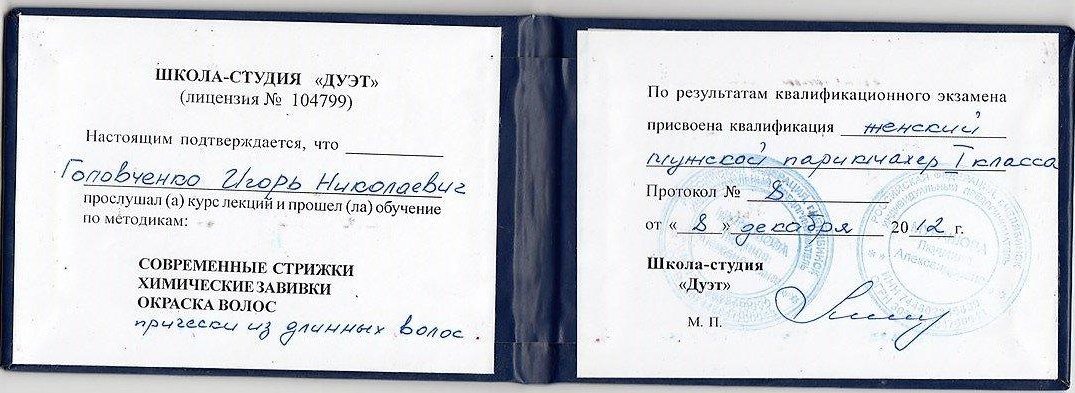 ШКОЛА-СТУДИЯ «ДУЭТ»
(лицензия № 104799)
Настоящим подтверждается, что
Головченко Игорь Николаевич
прослушал (а) курс лекций и прошел (ла) обучение
по методикам:
СОВРЕМЕННЫЕ СТРИЖКИ
ХИМИЧЕСКИЕ ЗАВИВКИ
ОКРАСКА ВОЛОС
прически из длинных волос.
По результатам квалификационного экзамена
присвоена квалификация женский
мужской парикмахер I класса
Протокол № 8
от « 8 » декабря 2012 г.
Школа-студия
«Дуэт»
М. П.